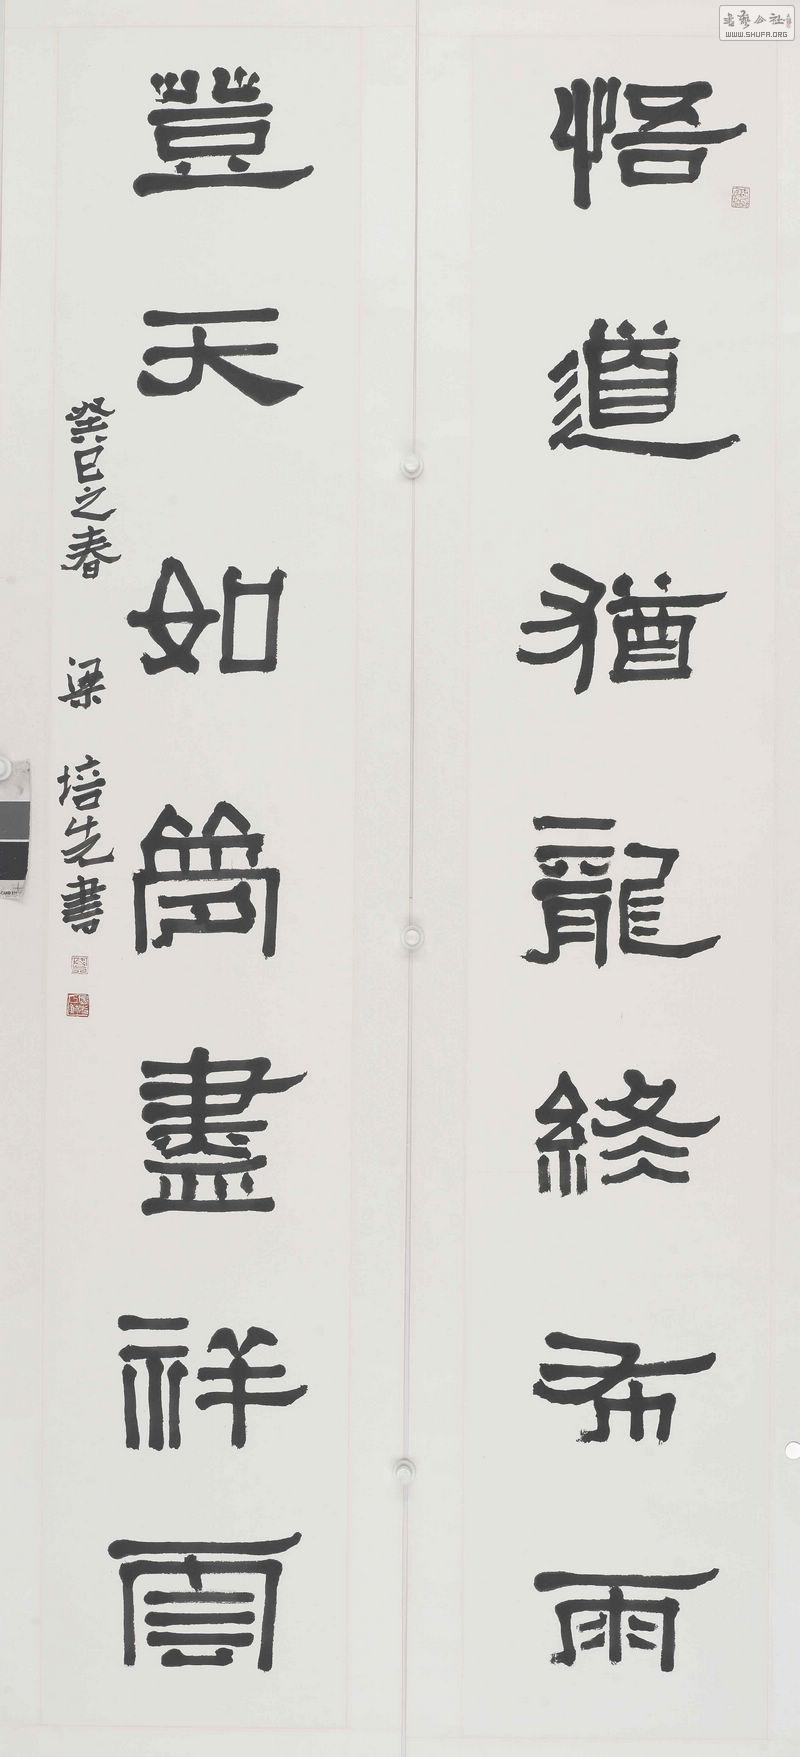 悟道猶龍終布雨
登天如夢盡祥雲
癸巳之春 梁培先書
书艺公社
WWW.SHUFA.ORG